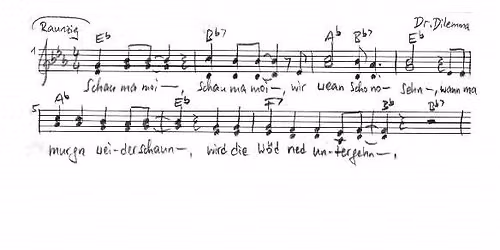 Raunzig
Dr. Dilemma
E♭ B♭7 A♭ B♭7 E♭
1
Schau ma moi—, schau ma moi—, wir wean scho no- sehn—, wann ma
A♭ E♭ F7 B♭ B♭7
5
murgn wei-derschaun—, wird die Wöd ned un-tergehn—,